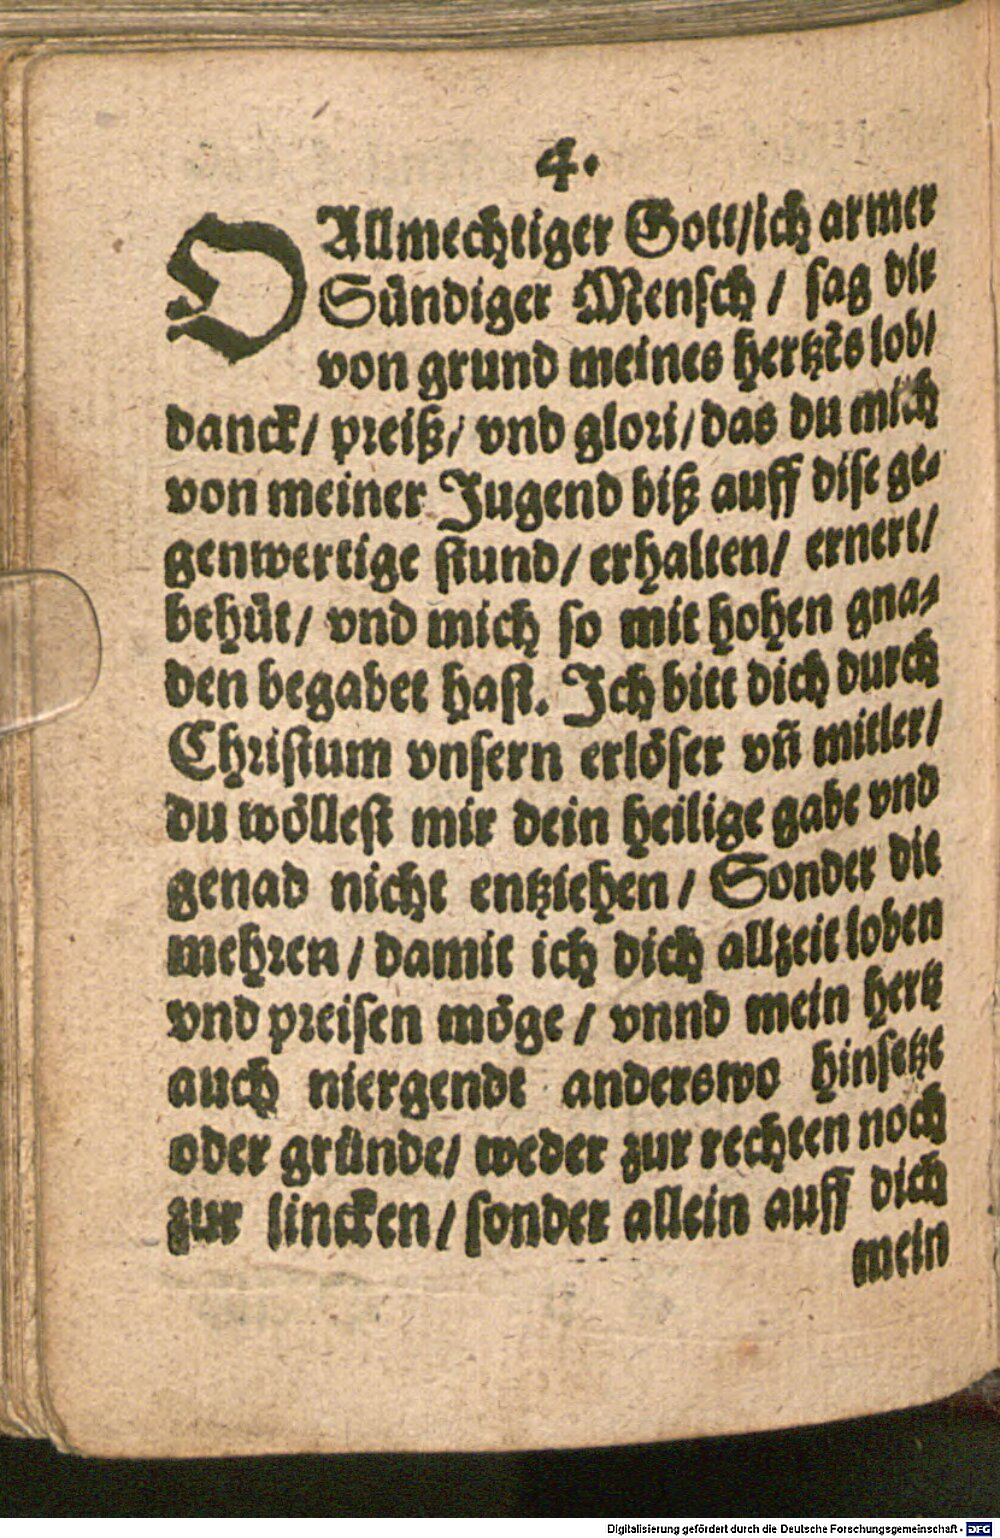 4.
O Allmechtiger Gott/ich armer
Sündiger Mensch / sag dir
von grund meines hertzẽs lob/
danck/ preiß/ vnd glori/das du mich
von meiner Jugend biß auff dise ge-
genwertige stund/ erhalten/ ernert/
behüt/ vnd mich so mit hohen gna-
den begabet hast. Ich bitt dich durch
Christum vnsern erlöser vñ mitler/
du wöllest mir dein heilige gabe vnd
genad nicht entziehen/ Sonder die
mehren/damit ich dich allzeit loben
vnd preisen möge/ vnnd mein hertz
auch niergendt anderswo hinsetze
oder gründe/ weder zur rechten noch
zur lincken/sonder allein auff dich
mein
Digitalisierung gefördert durch die Deutsche Forschungsgemeinschaft - DFG